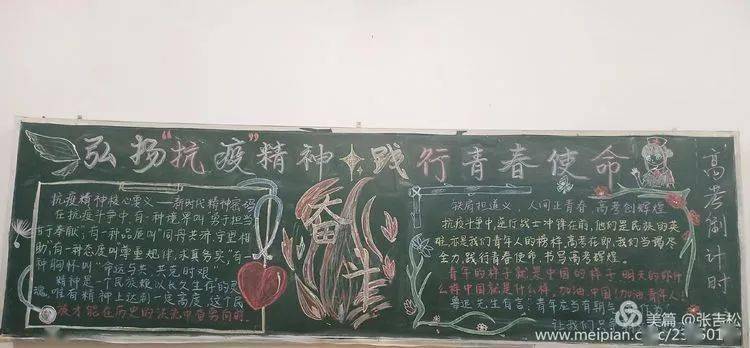 弘扬"抗疫"精神 践行青春使命
抗疫精神核心要义——新时代精神密码
在抗疫斗争中,有一种境界叫"勇于担当
甘于奉献",有一种品质叫"同舟共济,守望相
助,有一种态度叫尊重规律,求真务实,有一
种胸怀叫"命运与共,共克时艰"
精神是一个民族赖以长久生存的灵
魂,唯有精神上达到一定高度,这个民
族才能在历史的洪流中奋勇向前
奋斗
铁肩担道义,人间正青春,高考创辉煌
抗疫斗争中,逆行战士冲锋在前,他们是民族的英
雄,亦是我们青年人的榜样,高考在即,我们当竭尽
全力,践行青春使命,书写高考辉煌。
青年的样子就是中国的样子 明天的你什
么样中国就是什么样,加油中国!加油青年人!
鲁迅先生有言:青年应当有朝气
让我们
高考倒计时
美篇 @张吉松
www.meipian.c